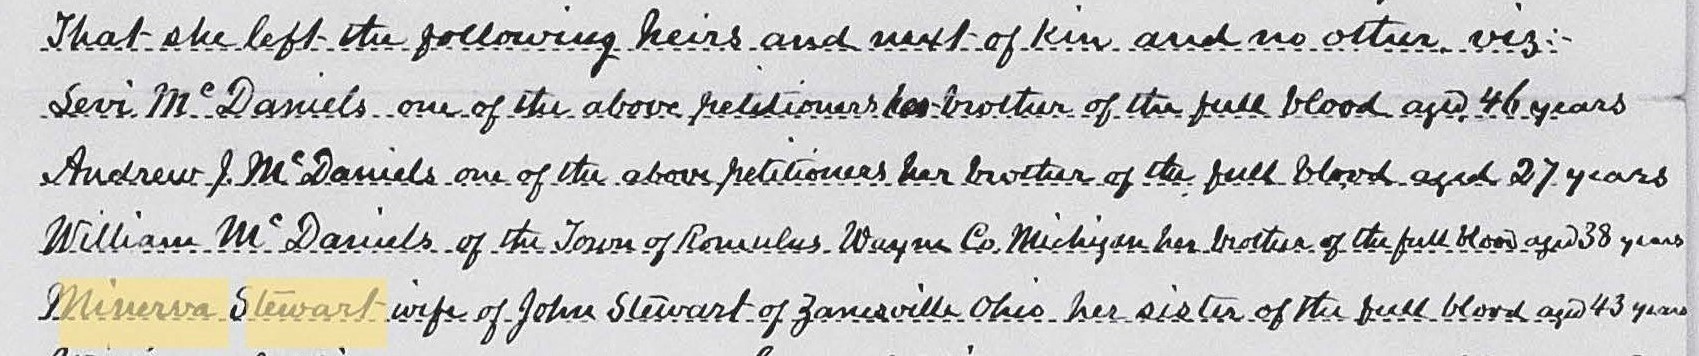 That she left the following heirs and next of kin and no other viz:-
Levi McDaniels one of the above petitioners her brother of the full blood aged 46 years
Andrew J. McDaniels one of the above petitioners her brother of the full blood aged 27 years
William McDaniels of the Town of Romulus Wayne Co. Michigan her brother of the full blood aged 38 years
Minerva Stewart wife of John Stewart of Zanesville Ohio her sister of the full blood aged 43 years